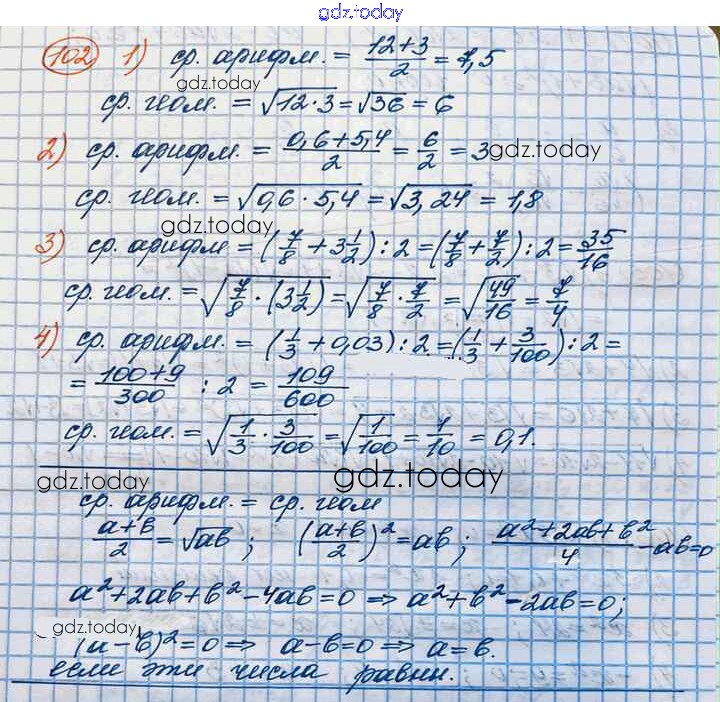 gdz.today
102 1) ср. арифм. = (12+3)/2 = 7,5
gdz.today
ср. геом. = √(12·3) = √36 = 6
2) ср. арифм. = (0,6+5,4)/2 = 6/2 = 3 gdz.today
ср. геом. = √(0,6·5,4) = √3,24 = 1,8
gdz.today
3) ср. арифм = (7/8 + 3 1/2) : 2 = (7/8 + 7/2) : 2 = 35/16
ср. геом. = √(7/8 · (3 1/2)) = √(7/8 · 7/2) = √(49/16) = 7/4
4) ср. арифм. = (1/3 + 0,03) : 2 = (1/3 + 3/100) : 2 =
= (100+9)/300 : 2 = 109/600
ср. геом. = √(1/3 · 3/100) = √(1/100) = 1/10 = 0,1.
gdz.today gdz.today
ср. арифм. = ср. геом
(a+b)/2 = √ab ; ((a+b)/2)² = ab ; (a²+2ab+b²)/4 - ab=0
a²+2ab+b²-4ab=0 ⇒ a²+b²-2ab=0;
gdz.today
(a-b)²=0 ⇒ a-b=0 ⇒ a=b.
если эти числа равны.